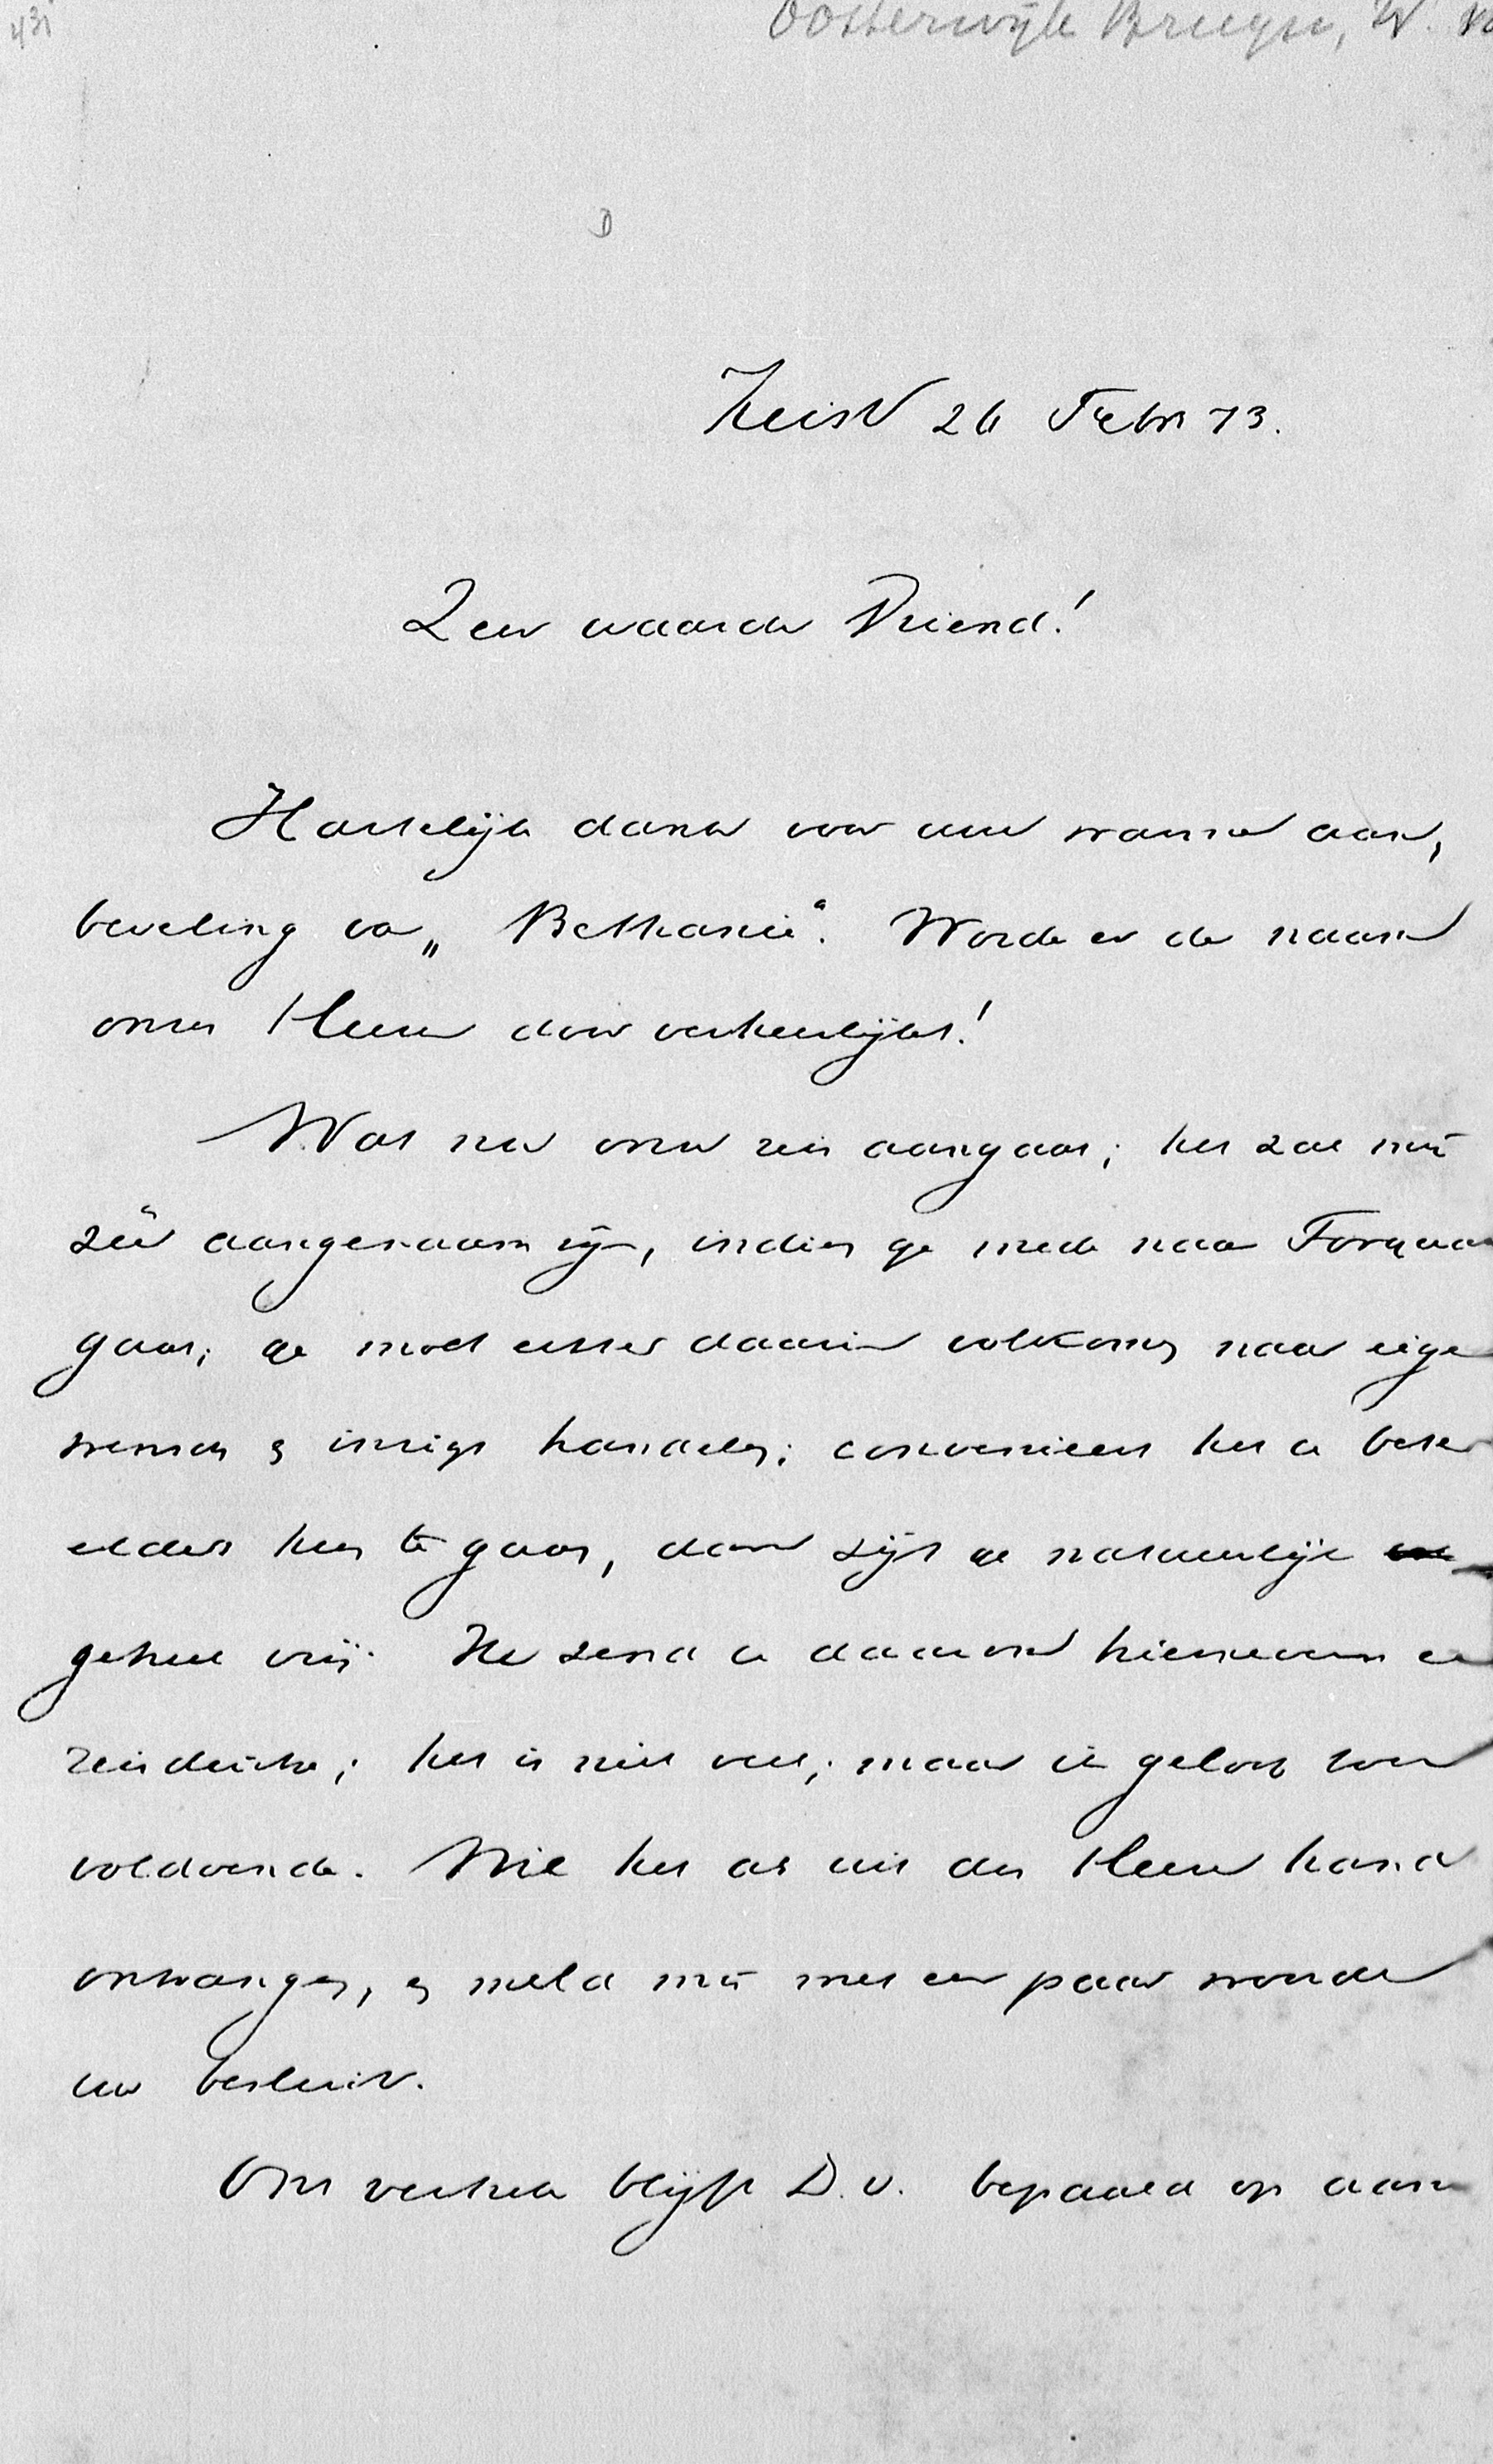 431
Oosterwijk Bruyn, W. v
D
Zeist 26 Febr 73.
Zeer waarde Vriend!
Hartelijk dank voor uw warme aan,
beveling van „Bethanië“. Worde er de naam
onzes Heeren door verheerlijkt!
Wat nu onze reis aangaat; het zal mij
zeer aangenaam zijn, indien ge mede naar Torquay
gaat; ge moet echter daarin volkomen naar eigen
wensch en inzigt handelen; convenieert het u beter
elders heen te gaan, dan zijt ge natuurlijk
geheel vrij. Ik zend u daarom hiernevens een
reisduitje; het is niet veel; maar ik geloof toch
voldoende. Wil het als uit des Heeren hand
ontvangen, en meld mij met een paar woorden
uw besluit.
Ons vertrek blijft D.V. bepaald op aan